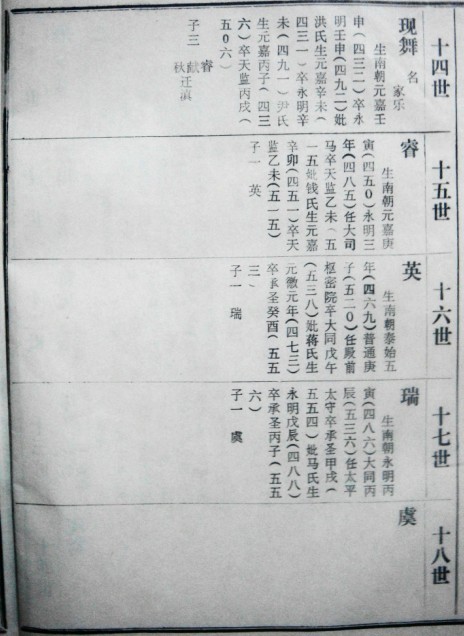 十四世
现舞 名家乐
生南朝元嘉壬
申(四三二)卒永
明壬申(四九二)妣
洪氏生元嘉辛未(
四三一)卒永明辛
未(四九一)尹氏
生元嘉丙子(四三
六)卒天监丙戌(
五0六)
子三 睿 献 秋迁滇
十五世
睿
生南朝元嘉庚
寅(四五0)永明三
年(四八五)任大司
马卒天监乙未(五
一五妣钱氏生元嘉
辛卯(四五一)卒天
监乙未(五一五)
子一 英
十六世
英
生南朝泰始五
年(四六九)普通庚
子(五二0)任殿前
枢密院卒大同戊午
(五三八)妣蒋氏生
元徽元年(四七三)
卒承圣癸酉(五五
三)
子一 瑞
十七世
瑞
生南朝永明丙
寅(四八六)大同丙
辰(五三六)任太平
太守卒承圣甲戌(
五五四)妣马氏生
永明戊辰(四八八)
卒承圣丙子(五五
六)
子一 虞
十八世
虞